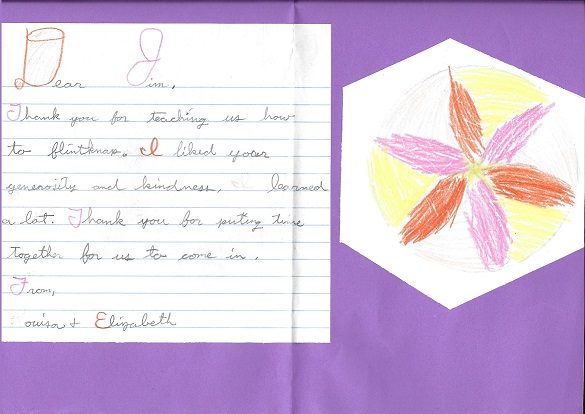 Dear Jim,
Thank you for teaching us how
to flintknap. I liked your
generosity and kindness. I learned
a lot. Thank you for puting time
together for us to come in.
From,
Louisa + Elizabeth